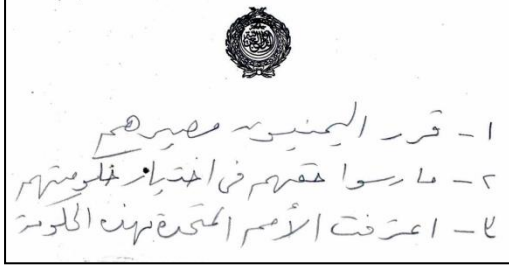 ١ - قرر اليمنيون مصيرهم
٢ - مارسوا حقهم في اختيار حكومتهم
٣ - اعترفت الأمم المتحدة بهذه الحكومة